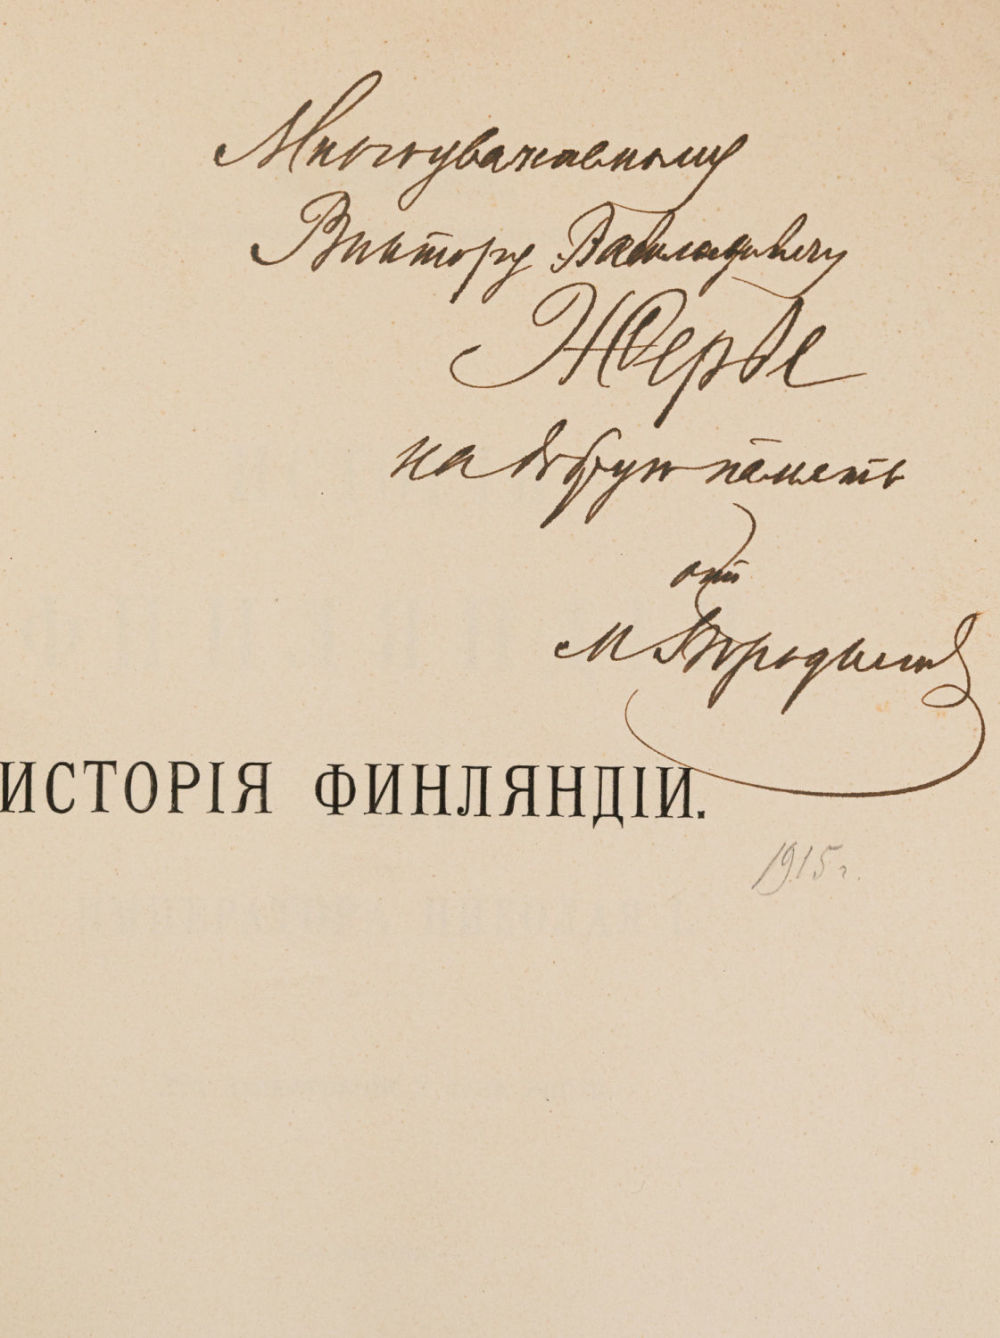 Многоуважаемому
Виктору Вавиловичу
Жерве
на добрую память
отъ
М Бородкина
ИСТОРІЯ ФИНЛЯНДІИ.
1915 г.